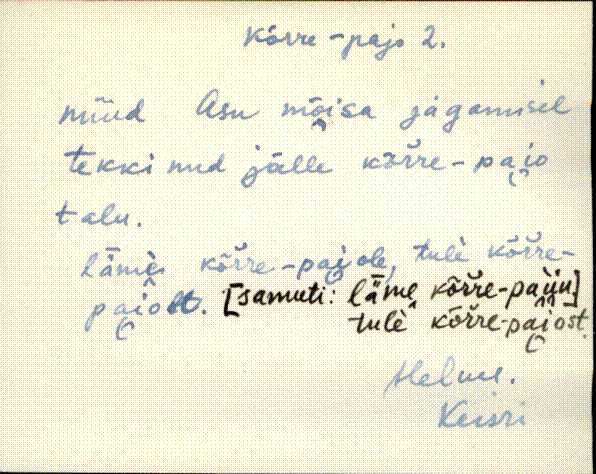 Kõrre-pajo 2.
nüüd Asu mõisa jagamisel
tekkinud jälle kõrre-pajo
talu.
lämè kõrre-pajole, tulè kõrre-
pajolt. [samuti: läme kõrre-pajju]
tulè kõrre-pajost.
Helme.
Keisri